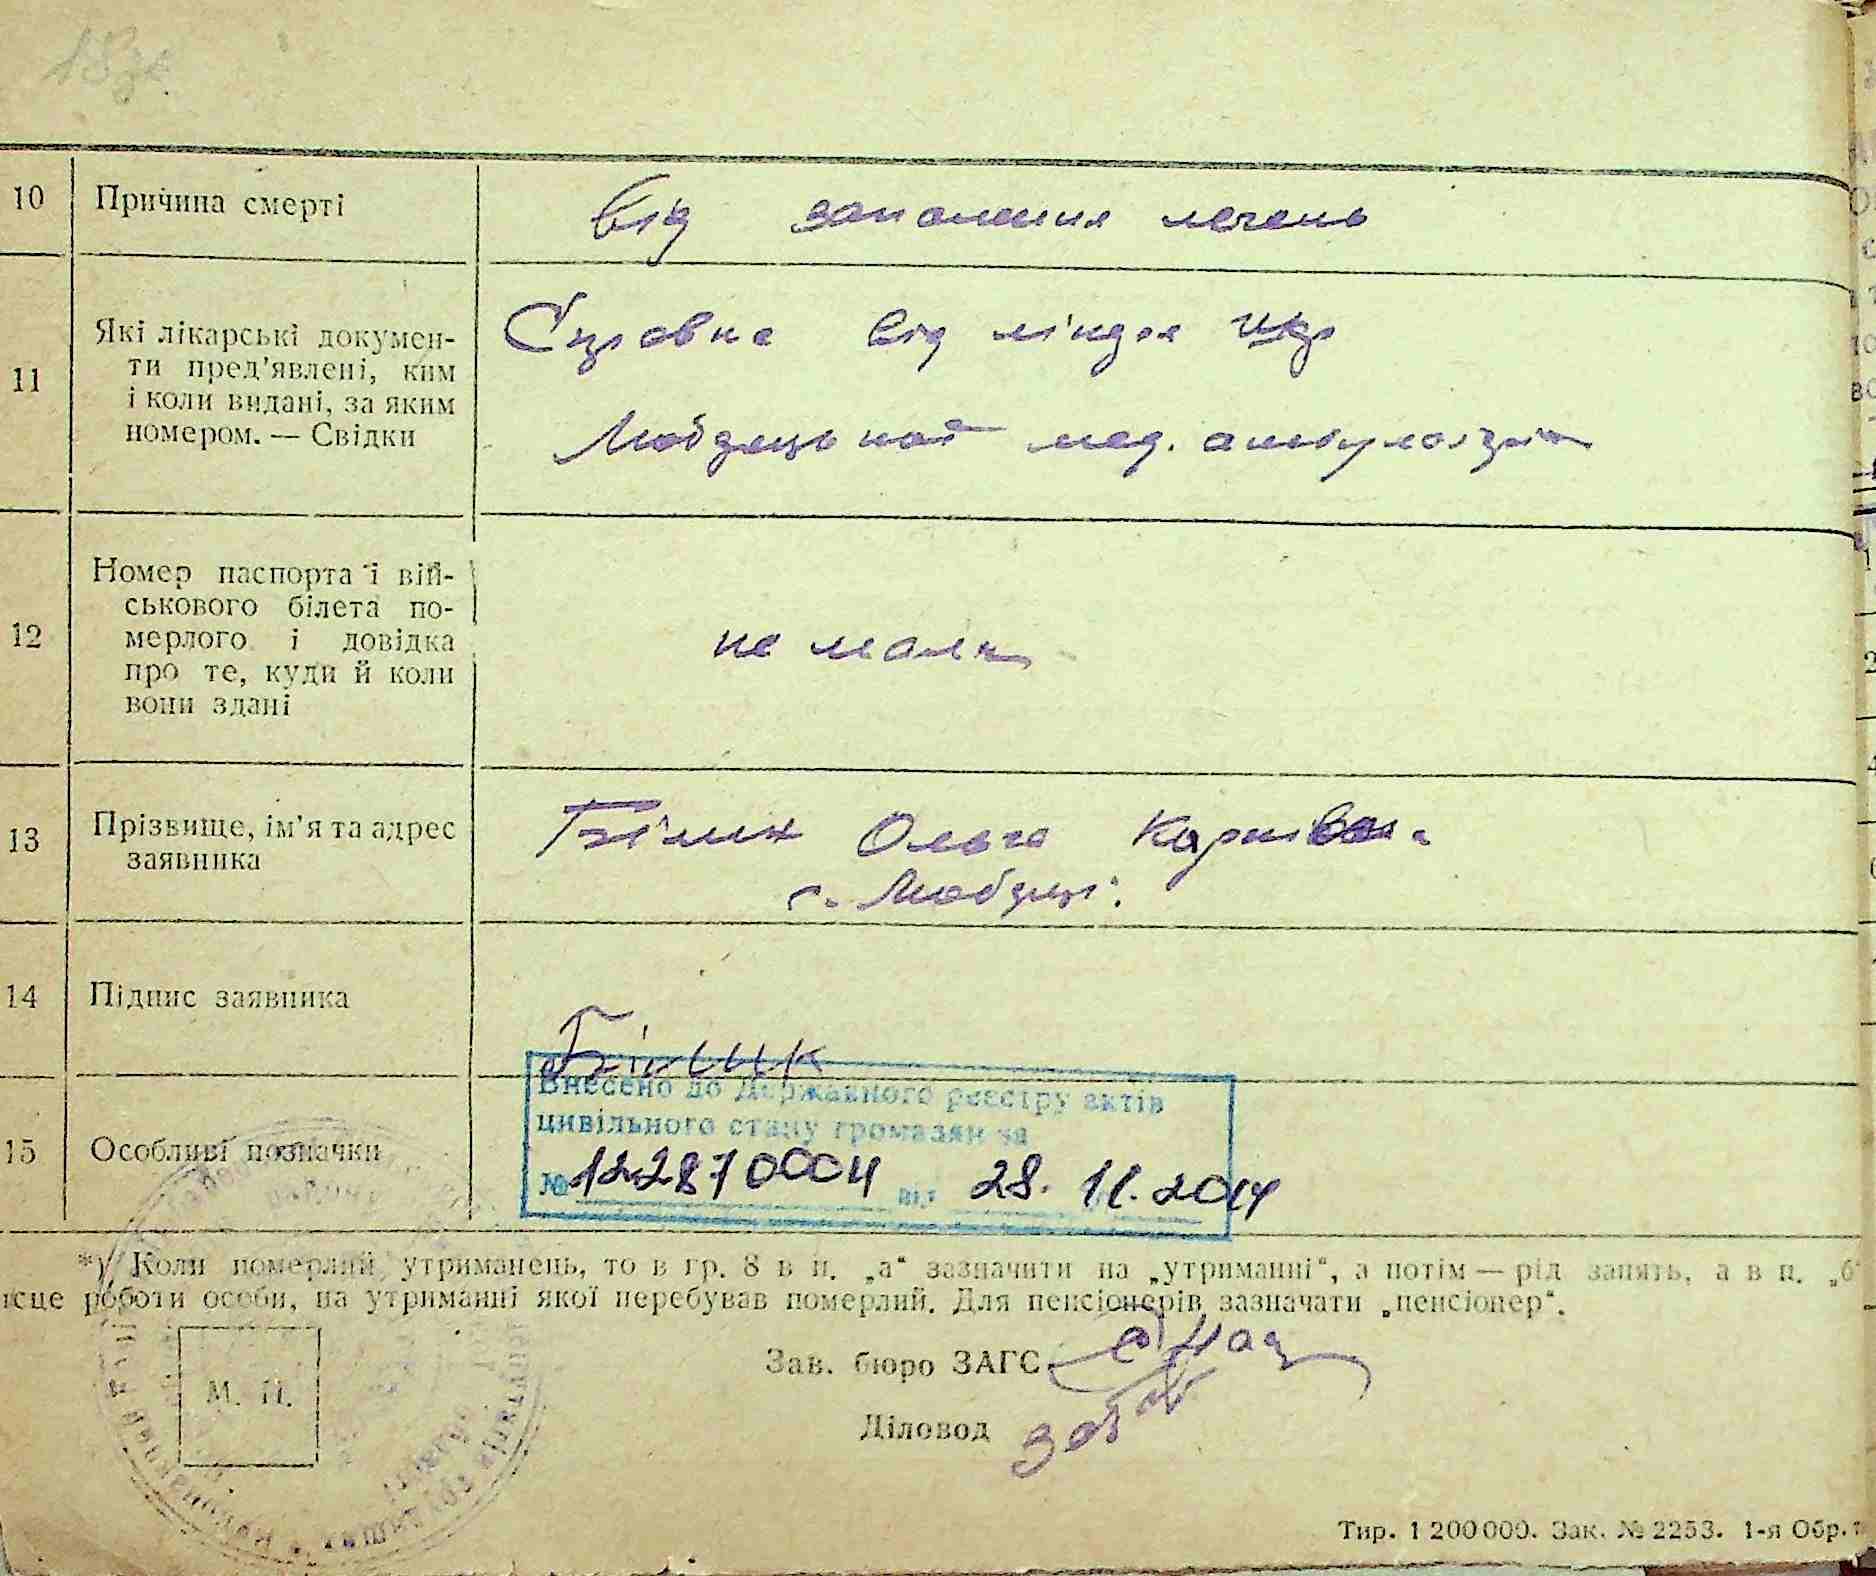 10 Причина смерті
від запалення легень
11 Які лікарські докумен-
ти пред'явлені, ким
і коли видані, за яким
номером. — Свідки
Справка від
мед.
12 Номер паспорта і вій-
ськового білета по-
мерлого і довідка
про те, куди й коли
вони здані
не мали
13 Прізвище, ім'я та адрес
заявника
Білик Ольга
с.
14 Підпис заявника
Білик
15 Особливі позначки
Внесено до Державного реєстру актів
цивільного стану громадян за
№ 1228710004 від 28. 11. 2014
*) Коли померлий утриманець, то в гр. 8 в п. „а“ зазначити на „утриманні“, а потім — рід занять, а в п. „б“
ісце роботи особи, на утриманні якої перебував померлий. Для пенсіонерів зазначати „пенсіонер“.
М. П.
Зав. бюро ЗАГС
Діловод
Тир. 1 200 000. Зак. № 2253. 1-я Обр. т